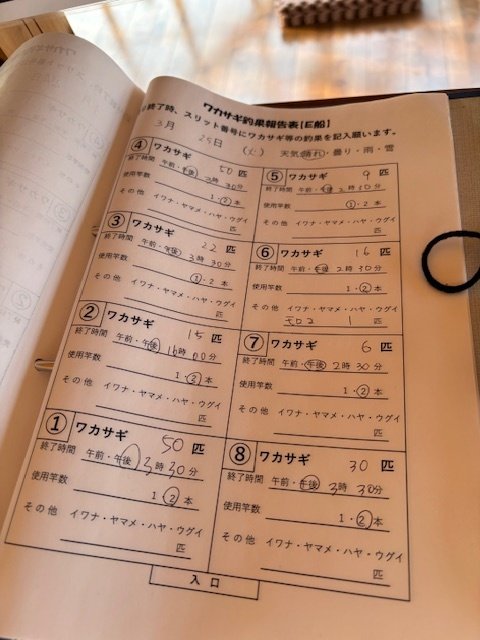 ワカサギ釣果報告表【E船】
終了時、スリット番号にワカサギ等の釣果を記入願います。
3月 25日 (火) 天気 晴れ・曇り・雨・雪
④ ワカサギ 50 匹
終了時間 午前・午後 3時30分
使用竿数 1・2 本
その他 イワナ・ヤマメ・ハヤ・ウグイ
匹
③ ワカサギ 22 匹
終了時間 午前・午後 3時30分
使用竿数 1・2 本
その他 イワナ・ヤマメ・ハヤ・ウグイ
匹
② ワカサギ 15 匹
終了時間 午前・午後 時00分
使用竿数 1・2 本
その他 イワナ・ヤマメ・ハヤ・ウグイ
匹
① ワカサギ 50 匹
終了時間 午前・午後 3時30分
使用竿数 1・2 本
その他 イワナ・ヤマメ・ハヤ・ウグイ
匹
⑤ ワカサギ 9 匹
終了時間 午前・午後 2時30分
使用竿数 1・2 本
その他 イワナ・ヤマメ・ハヤ・ウグイ
匹
⑥ ワカサギ 16 匹
終了時間 午前・午後 2時30分
使用竿数 1・2 本
その他 イワナ・ヤマメ・ハヤ・ウグイ
モロコ 1 匹
⑦ ワカサギ 6 匹
終了時間 午前・午後 2時30分
使用竿数 1・2 本
その他 イワナ・ヤマメ・ハヤ・ウグイ
匹
8 ワカサギ 30 匹
終了時間 午前・午後 3時30分
使用竿数 1・2 本
その他 イワナ・ヤマメ・ハヤ・ウグイ
匹
入口